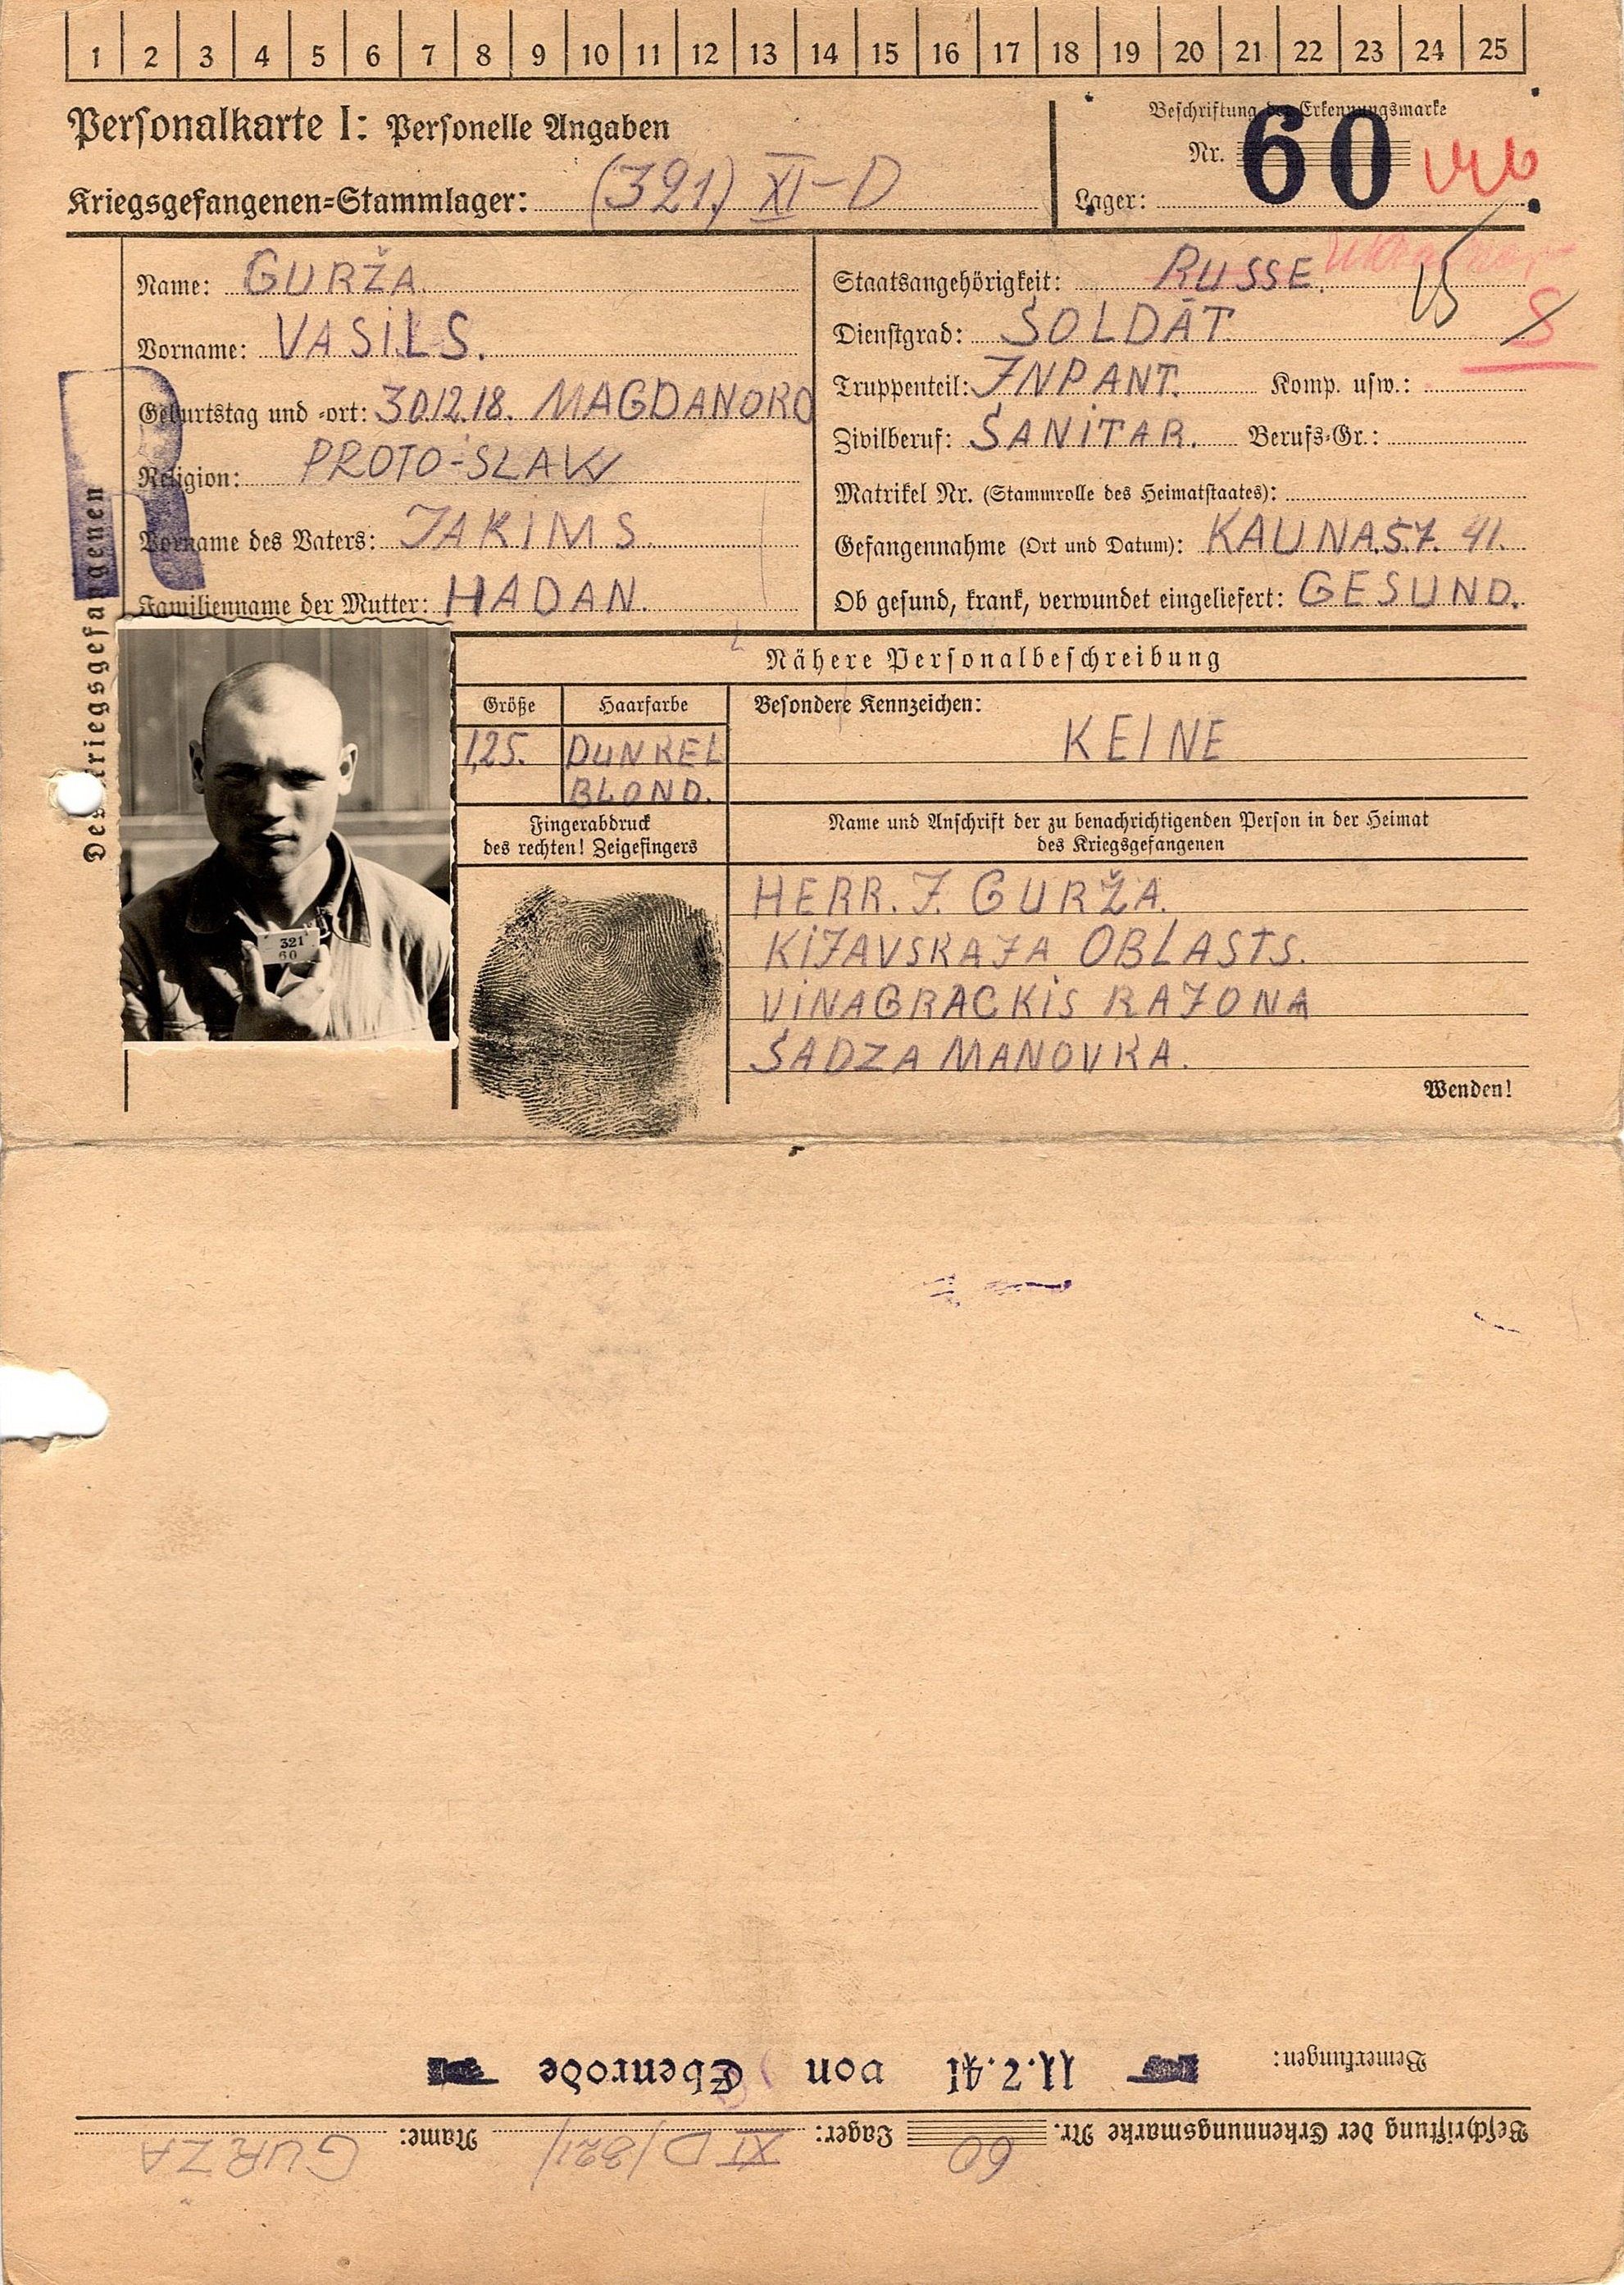 1 2 3 4 5 6 7 8 9 10 11 12 13 14 15 16 17 18 19 20 21 22 23 24 25
Personalkarte I: Personelle Angaben
Kriegsgefangenen-Stammlager: (321) XI-D
Beschriftung der Erkennungsmarke
Nr. 60
Lager:
Des Kriegsgefangenen
Name: GURŽA.
Vorname: VASILS.
Geburtstag und -ort: 30.12.18. MAGDANORO
Religion: PROTO-SLAW
Vorname des Vaters: JAKIMS.
Familienname der Mutter: HADAN.
Staatsangehörigkeit: RUSSE.
Dienstgrad: SOLDĀT.
Truppenteil: INPANT. Komp. usw.:
Zivilberuf: SANITAR. Berufs-Gr.:
Matrikel Nr. (Stammrolle des Heimatstaates):
Gefangennahme (Ort und Datum): KAUNAS.7. 41.
Ob gesund, krank, verwundet eingeliefert: GESUND.
321
60
Nähere Personalbeschreibung
Größe
1,25.
Haarfarbe
DUNKEL
BLOND.
Besondere Kennzeichen:
KEINE
Fingerabdruck
des rechten! Zeigefingers
Name und Anschrift der zu benachrichtigenden Person in der Heimat
des Kriegsgefangenen
HERR. J. GURŽA.
KIJAVSKAJA OBLASTS.
VINAGRACKIS RAJONA
SADZA MANOVKA.
Wenden!
Beschriftung der Erkennungsmarke Nr. 60 Lager: XI D/321/ Name: GURZA
Bemerkungen: 11.7.41 von Ebenrode